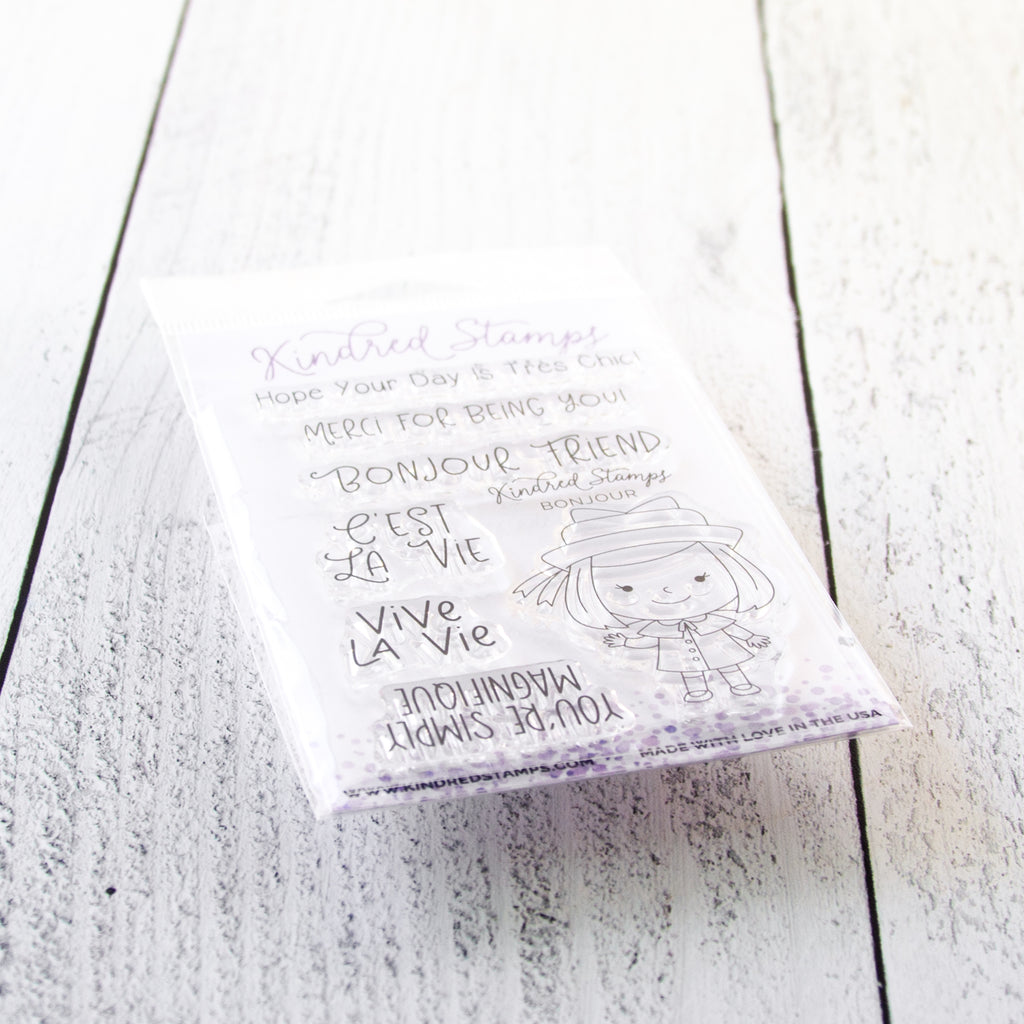 Kindred Stamps
Hope Your Day Is Très Chic!
MERCI FOR BEING YOU!
BONJOUR FRIEND
Kindred Stamps
BONJOUR
C'EST
LA VIE
ViVe
LA Vie
YOU'RE SIMPLY
MAGNIFIQUE
WWW.KINDREDSTAMPS.COM
MADE WITH LOVE IN THE USA